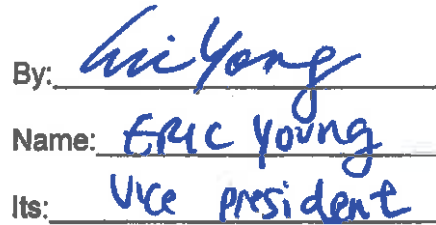 By: Eric Young
Name: ERIC Young
Its: Vice president